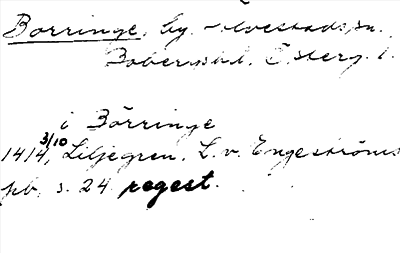 Borringe, by. Älvestads sn.
Bobergs hd. Österg. l.
i Börringe
1414 3/10, Liljegren, L. v. Engeströms
pb, s. 24 regest.